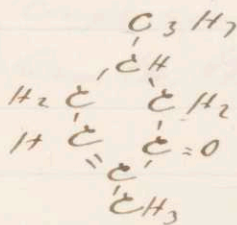 C3H7
CH
H2C CH2
HC C=O
C
CH3